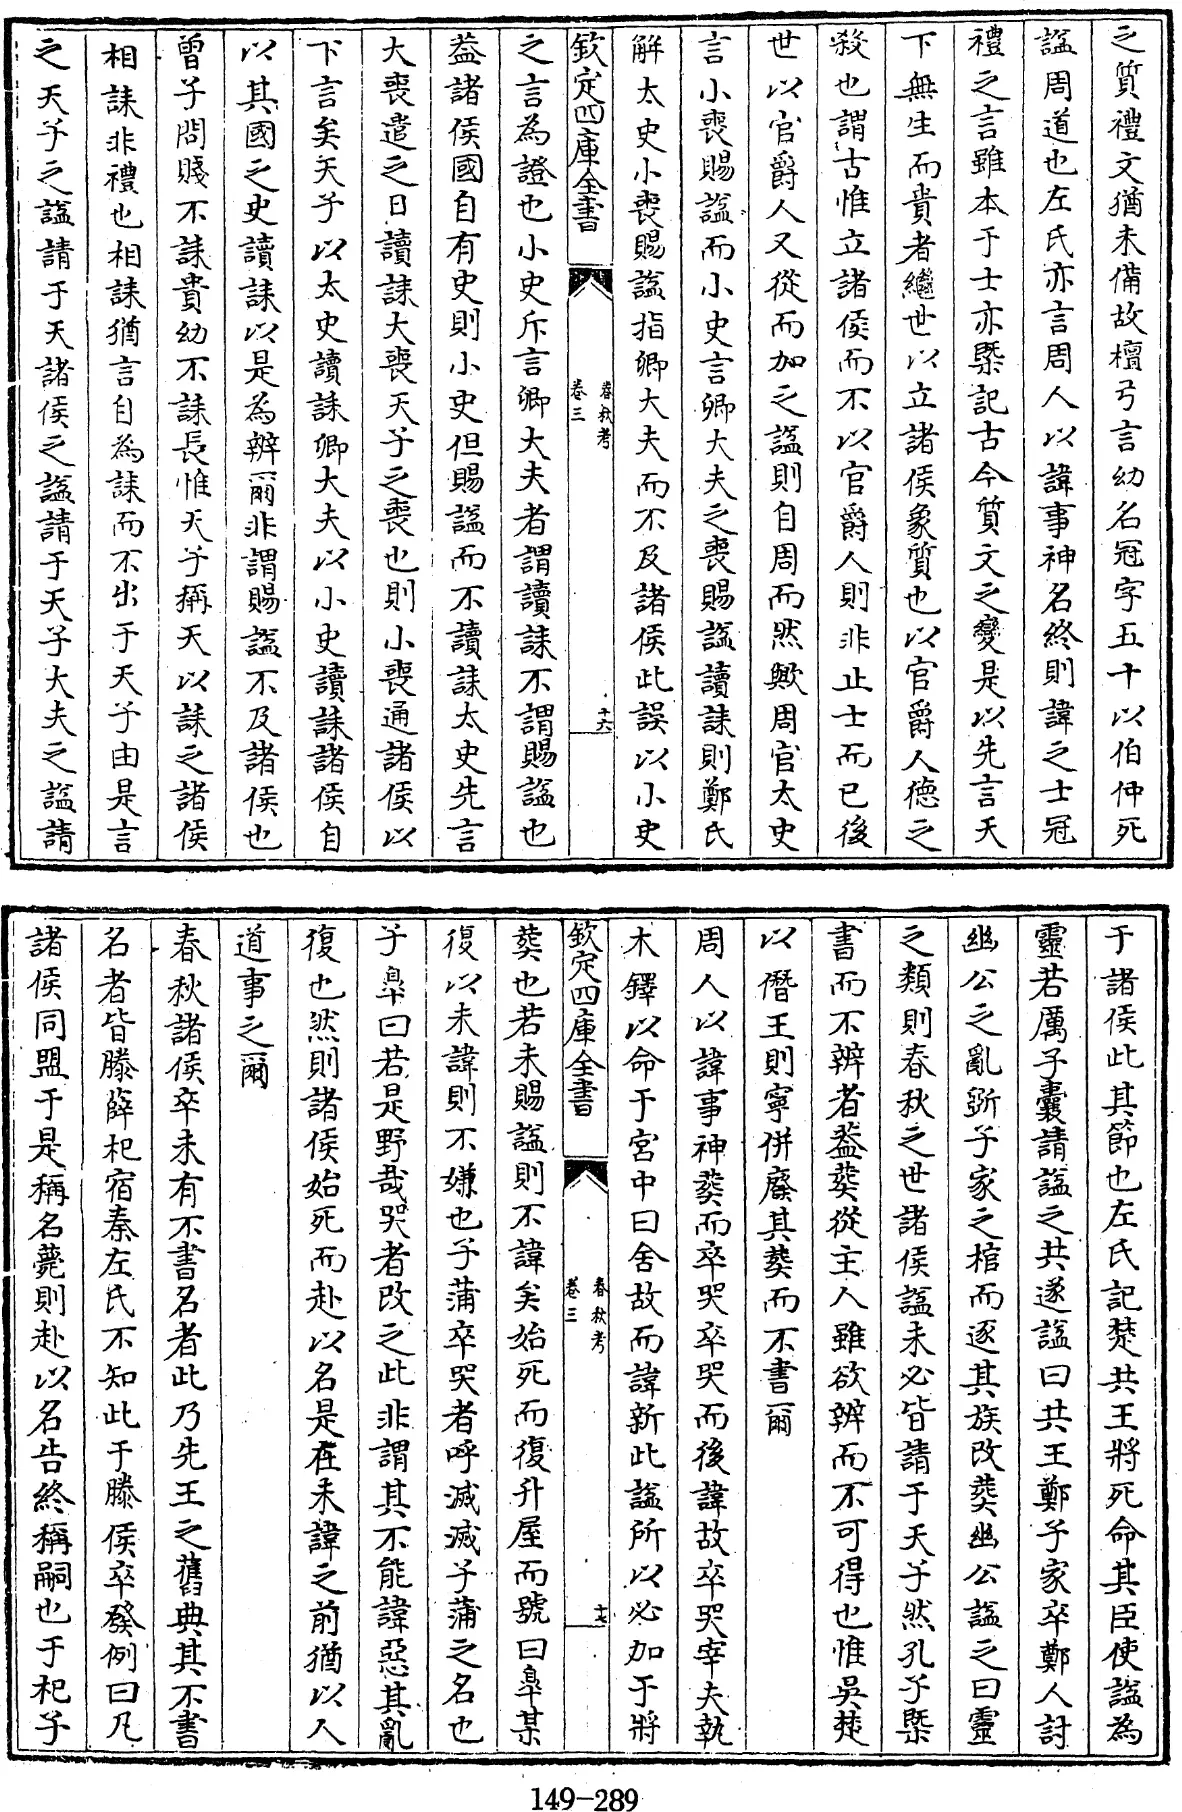 之質禮文猶未備故檀弓言幼名冠字五十以伯仲死
諡周道也左氏亦言周人以諱事神名終則諱之士冠
禮之言雖本于士亦槩記古今質文之變是以先言天
下無生而貴者繼世以立諸侯象賢也以官爵人德之
殺也謂古惟立諸侯而不以官爵人則非止士而已後
世以官爵人又從而加之諡則自周而然歟周官太史
言小喪賜諡而小史言卿大夫之喪賜諡讀誄則鄭氏
解太史小喪賜諡指卿大夫而不及諸侯此誤以小史
欽定四庫全書
春秋考
卷三
十六
之言為證也小史斥言卿大夫者謂讀誄不謂賜諡也
葢諸侯國自有史則小史但賜諡而不讀誄太史先言
大喪遣之日讀誄大喪天子之喪也則小喪通諸侯以
下言矣天子以太史讀誄卿大夫以小史讀誄諸侯自
以其國之史讀誄以是為辨爾非謂賜諡不及諸侯也
曾子問賤不誄貴幼不誄長惟天子稱天以誄之諸侯
相誄非禮也相誄猶言自為誄而不出于天子由是言
之天子之諡請于天諸侯之諡請于天子大夫之諡請
于諸侯此其節也左氏記楚共王將死命其臣使諡為
靈若厲子囊請諡之共遂諡曰共王鄭子家卒鄭人討
幽公之亂斲子家之棺而逐其族改葬幽公諡之曰靈
之類則春秋之世諸侯諡未必皆請于天子然孔子槩
書而不辨者葢葬從主人雖欲辨而不可得也惟吳楚
以僭王則寧併廢其葬而不書爾
周人以諱事神葬而卒哭卒哭而後諱故卒哭宰夫執
木鐸以命于宮中曰舍故而諱新此諡所以必加于將
欽定四庫全書
春秋考
卷三
十七
葬也若未賜諡則不諱矣始死而復升屋而號曰臯某
復以未諱則不嫌也子蒲卒哭者呼滅滅子蒲之名也
子臯曰若是野哉哭者改之此非謂其不能諱惡其亂
復也然則諸侯始死而赴以名是在未諱之前猶以人
道事之爾
春秋諸侯卒未有不書名者此乃先王之舊典其不書
名者皆滕薛杞宿秦左氏不知此于滕侯卒發例曰凡
諸侯同盟于是稱名薨則赴以名告終稱嗣也于杞子
149-289